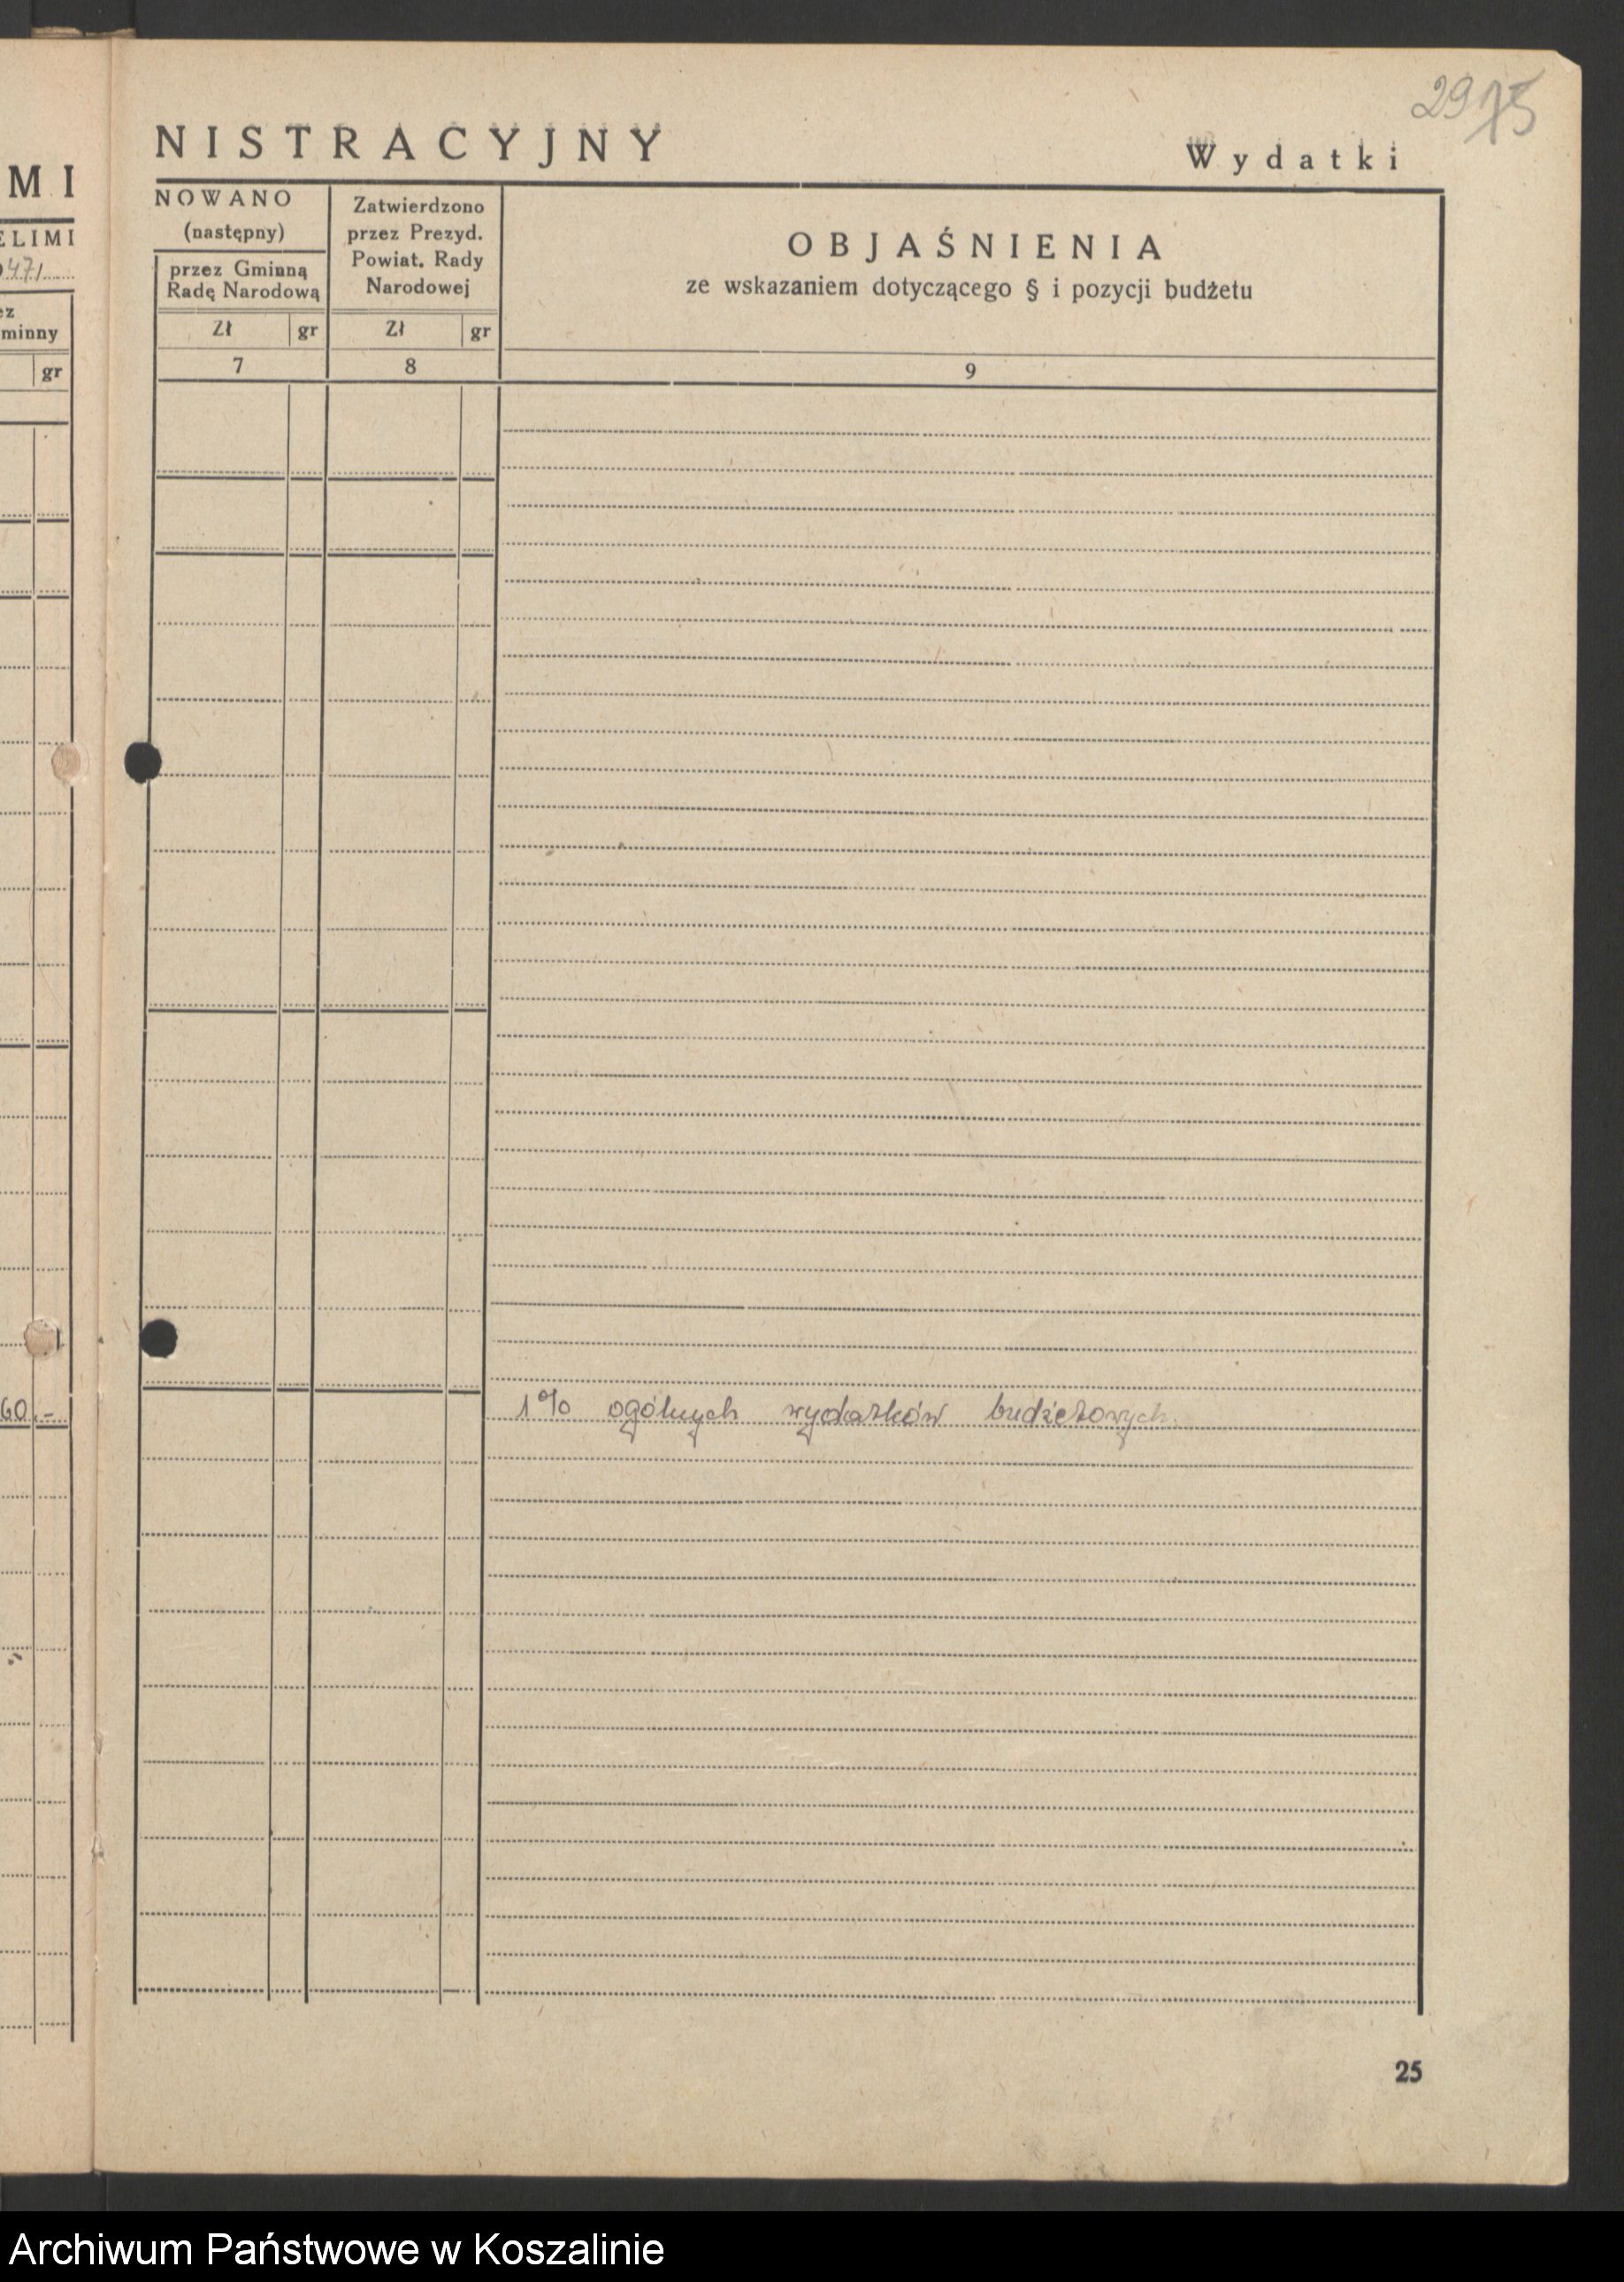 2915
NISTRACYJNY
Wydatki
MI
ELIMI
471
ez
minny
gr
NOWANO
(następny)
przez Gminną
Radę Narodową
Zł gr
7
Zatwierdzono
przez Prezyd.
Powiat. Rady
Narodowej
Zł gr
8
OBJAŚNIENIA
ze wskazaniem dotyczącego § i pozycji budżetu
9
60 -
1% ogólnych wydatków budżetowych.
25
Archiwum Państwowe w Koszalinie